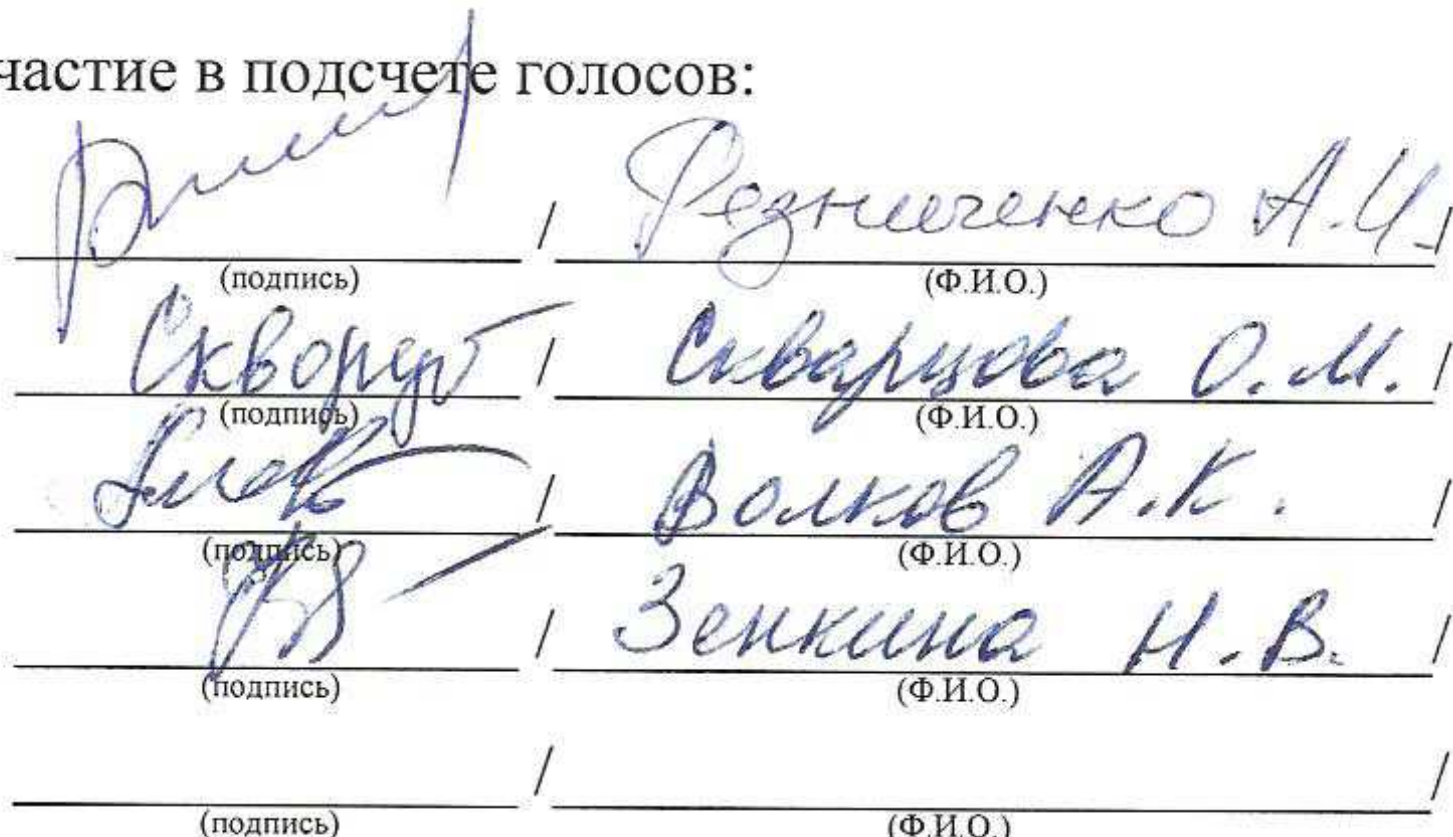 частие в подсчете голосов:
/ Резниченко А.И. /
(подпись) (Ф.И.О.)
Скворц / Скварцова О.М. /
(подпись) (Ф.И.О.)
/ Волков А.К. /
(подпись) (Ф.И.О.)
/ Зенкина Н.В. /
(подпись) (Ф.И.О.)
/ /
(подпись) (Ф.И.О.)